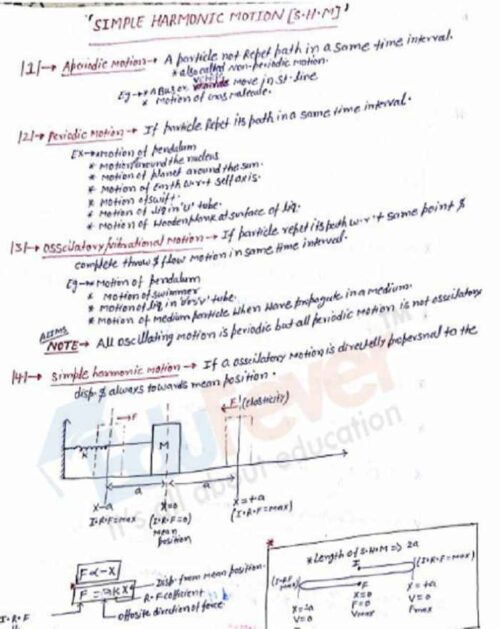 "SIMPLE HARMONIC MOTION [S.H.M]"
|1|→ Aperiodic Motion→ A particle not Repet path in a same time interval.
* also called non-periodic motion.
Eg→* A Bus or vehicle move in st. line
* Motion of gas molecule.
|2|→ Periodic Motion → If particle Repet its path in a same time interval.
Ex→ Motion of pendulum
* Motion around the nucleus
* Motion of planet around the sun.
* Motion of Earth w.r.t self axis.
* Motion of swift.
* Motion of liq in 'U' tube.
* Motion of Wooden plank at surface of liq.
|3|→ Osscilatory/vibrational Motion → If particle repet its path w.r.t same point &
complete throw & flow motion in same time interval.
Eg→ Motion of pendulum
* Motion of swimmer
* Motion of liq in 'U' tube.
* Motion of medium particle when wave propagate in a medium.
AIIMS
NOTE→ All oscillating motion is periodic but all periodic motion is not oscillatory
|4|→ Simple harmonic motion → If a osscilatory motion is directelly propersnal to the
disp. & always towards mean position.
F
F (Elasticity)
K
M
a
a
x=-a
x=0
x=+a
I.R.F=max
(I.R.F=0)
(I.R.F=max)
mean
position
EduFever
it's all about education
TM
F∝-x
F = -Kx
Disp. from mean position
R.F coefficient
opposite direction of force
I.R.F
*
* Length of S.H.M ⇒ 2a
(I.R.F=max)
(I.R.F
max)
F
x=-a
x=0
x=+a
V=0
F=0
V=0
Vmax
Fmax